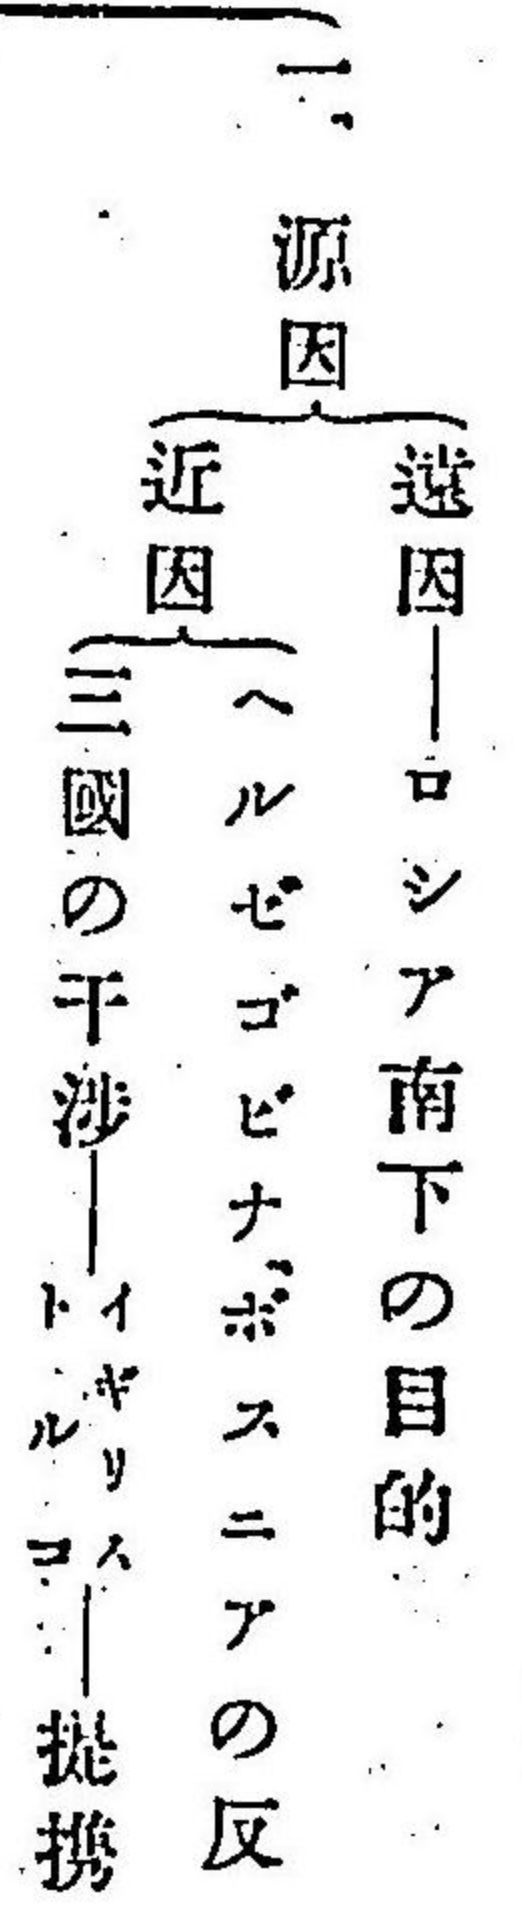 一、源因
遠因―ロシア南下の目的
近因
ヘルゼゴビナ、ボスニアの反
三國の干渉―イギリス
トルコ―提携